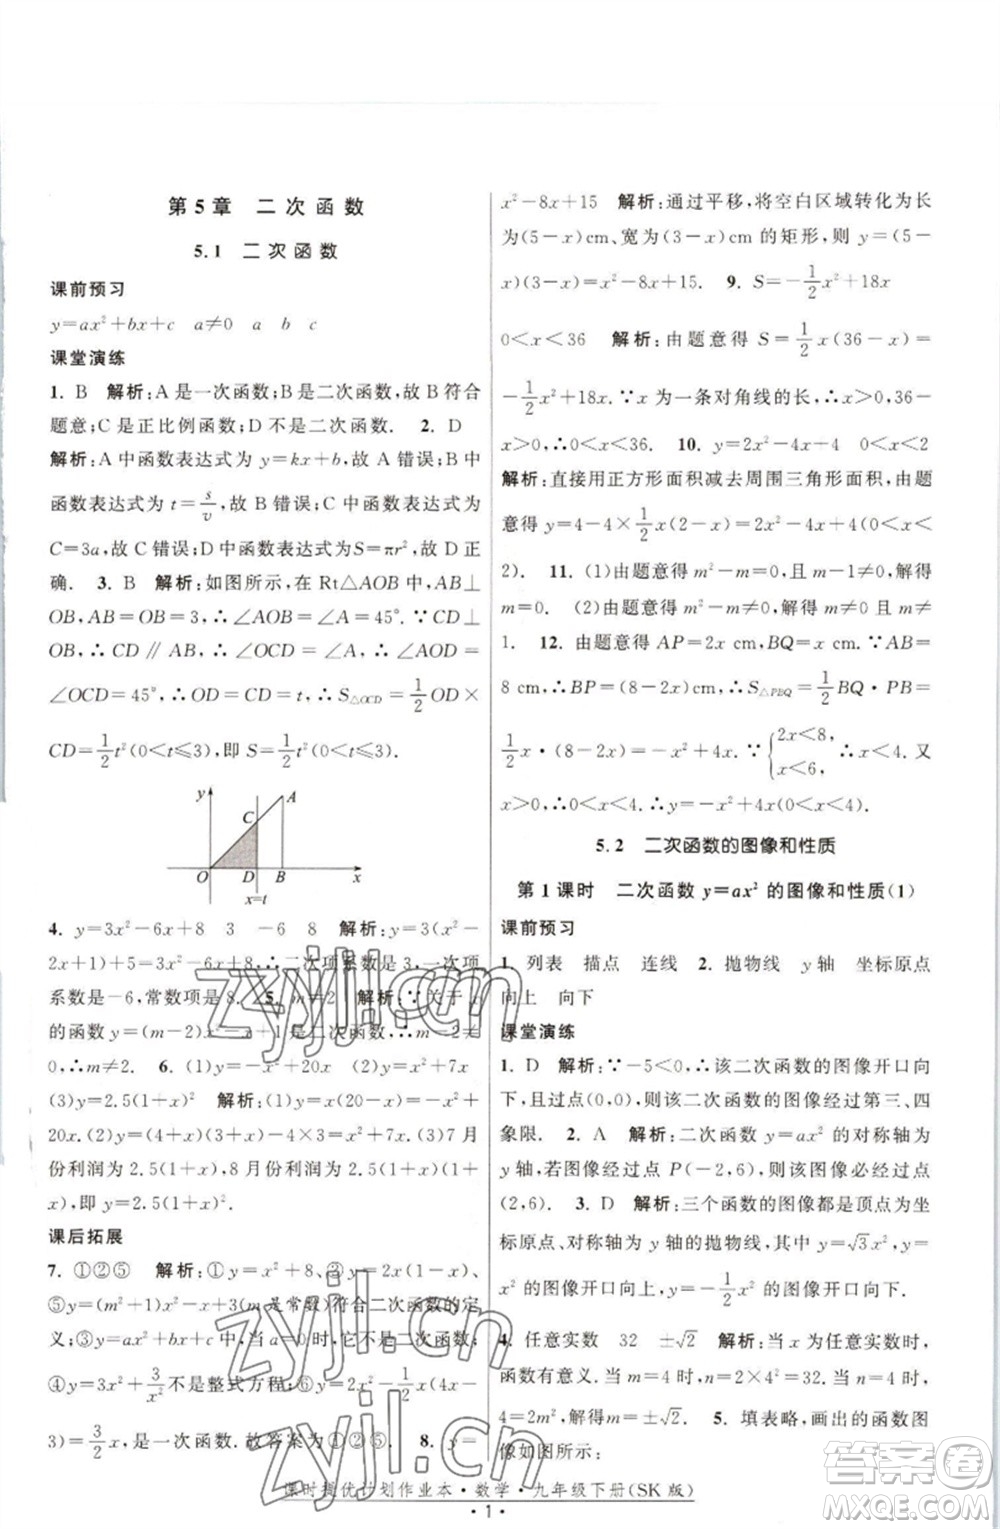 第5章 二次函数
5.1 二次函数
课前预习
y=ax²+bx+c a≠0 a b c
课堂演练
1. B 解析:A是一次函数;B是二次函数,故B符合
题意;C是正比例函数;D不是二次函数. 2. D
解析:A中函数表达式为y=kx+b,故A错误;B中
函数表达式为t=s/v,故B错误;C中函数表达式为
C=3a,故C错误;D中函数表达式为S=πr²,故D正
确. 3. B 解析:如图所示,在Rt△AOB中,AB⊥
OB,AB=OB,∴∠AOB=∠A=45°.∵CD⊥
OB,∴CD∥AB,∴∠OCD=∠A,∴∠AOD=
∠OCD=45°,∴OD=CD=t,∴S△OCD=1/2 OD×
CD=1/2 t²(0<t≤3),即S=1/2 t²(0<t≤3).
y A C O D B x
x=t
4. y=3x²-6x+8 3 -6 8 解析:y=3(x-1)²
+5=3x²-6x+8,∴二次项系数是3,一次项
系数是-6,常数项是8. 5. m≠2 解析:∵关于x
的函数y=(m-2)x²-x+1是二次函数,∴m-2≠
0,∴m≠2. 6. (1)y=-x²+20x (2)y=x²+7x
(3)y=2.5(1+x)² 解析:(1)y=x(20-x)=-x²+
20x.(2)y=(4+x)(3+x)-4×3=x²+7x.(3)7月
份利润为2.5(1+x),8月份利润为2.5(1+x)(1+
x),即y=2.5(1+x)².
课后拓展
7. ①②⑤ 解析:①y=x²+8、②y=2x(1-x)、
⑤y=(m²+1)x²+3(m是常数)符合二次函数的定
义;③y=ax²+bx+c中,当a=0时,它不是二次函数;
④y=x²+3/x²不是整式方程;⑥y=1/2x²-1/2x(x-
3)=3/2x,是一次函数.故答案为①②⑤. 8. y=
x²-8x+15 解析:通过平移,将空白区域转化为长
为(5-x)cm、宽为(3-x)cm的矩形,∴y=(5-
x)(3-x)=x²-8x+15. 9. S=-1/2x²+18x
0<x<36 解析:由题意得S=1/2x(36-x)=
-1/2x²+18x.∵x为一条对角线的长,∴x>0,36-
x>0,∴0<x<36. 10. y=2x²-4x+4 0<x<2
解析:直接用正方形面积减去周围三角形面积,由题
意得y=4-4×1/2x(2-x)=2x²-4x+4(0<x<
2). 11. (1)由题意得m²-m=0,且m-1≠0,解得
m=0. (2)由题意得m²-m≠0,解得m≠0且m≠
1. 12. 由题意得AP=2x cm,BQ=x cm.∵AB=
8 cm,∴BP=(8-2x)cm,∴S△PBQ=1/2BQ·PB=
1/2x·(8-2x)=-x²+4x.∵{2x<8, x<6,∴x<4.又
x>0,∴0<x<4.∴y=-x²+4x(0<x<4).
5.2 二次函数的图像和性质
第1课时 二次函数y=ax²的图像和性质(1)
课前预习
1. 列表 描点 连线 2. 抛物线 y轴 坐标原点
向上 向下
课堂演练
1. D 解析:∵-5<0,∴该二次函数的图像开口向
下,且过点(0,0),∴该二次函数的图像经过第三、四
象限. 2. A 解析:二次函数y=ax²的对称轴为
y轴,若图像经过点P(-2,6),则该图像必经过点
(2,6). 3. D 解析:三个函数的图像都是顶点为坐
标原点、对称轴为y轴的抛物线,y=√3x²、y=
x²的图像开口向上,y=-1/2x²的图像开口向下.
4. 任意实数 32 ±√2 解析:当x为任意实数时,
函数都有意义,当m=4时,n=2×4²=32,当n=4时,
4=2m²,解得m=±√2. 5. 填表略,画出的函数图
像如图所示:
课时提优计划作业本·数学·九年级下册(SK版)
·1·
zyjl.cn
zyjl.cn
答案圈
MXQE.COM